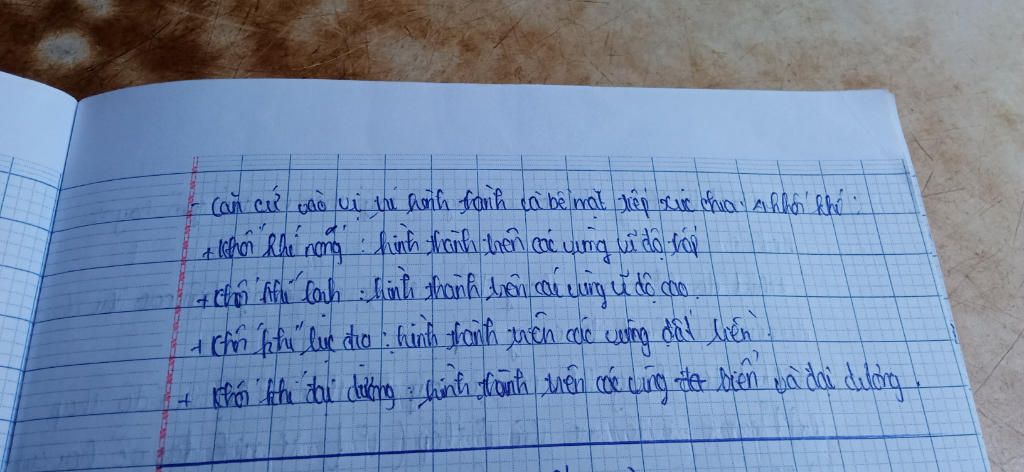 - Căn cứ vào vị trí hình thành và bề mặt tiếp xúc chia 4 khối khí:
+ khối khí nóng: hình thành trên các vùng vĩ độ thấp
+ khối khí lạnh: hình thành trên các vùng vĩ độ cao.
+ khối khí lục địa: hình thành trên các vùng đất liền.
+ khối khí đại dương: hình thành trên các vùng biển và đại dương.